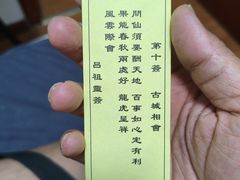 第十簽 古城相會
問仙須要酬天地 百事如心定有利
果能春秋兩處好 龍虎呈祥
風雲際會
呂祖靈簽